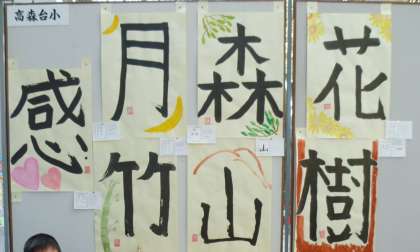 高森台小
感
月
森
花
竹
山
樹
山